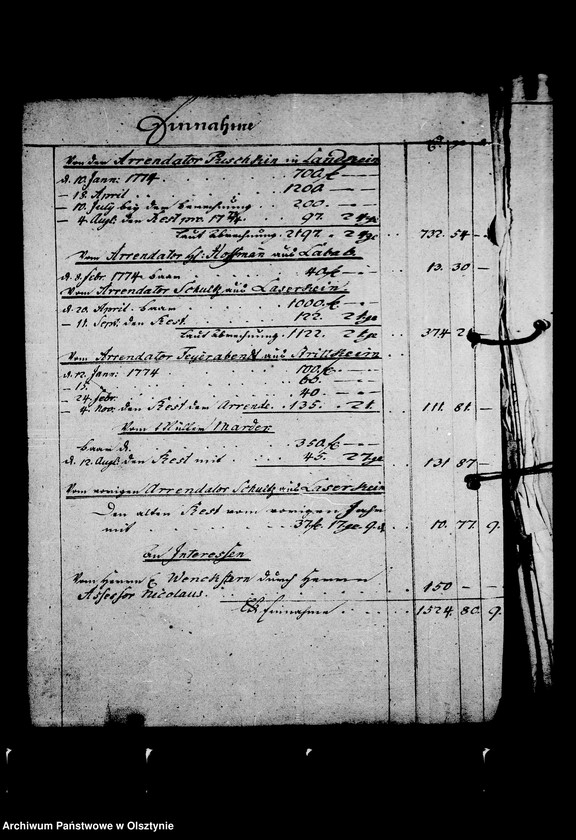 Einnahme
Von dem Arrendator Puschkein in Landkein
d. 10. Janr: 1774 . . . 700. f — —
— 18. April . . . 1200. — —
— 10. July bey der Berechnung . 200. — —
— 4. Augt. den Rest pro 177¾ . . 97. 24 ge
Laut Abrechnung. 2197. „ 24 ge 732. 54 —
Vom Arrendator Hoffman aus Labab
d. 8. Febr. 1774 baar . . . 40 f — — 13. 30 —
Vom Arrendator Schultz aus Laserkein
d. 20. April. baar . . . 1000. f — —
— 11. Sept. den Rest . . . 122. 2 ge
Laut Abrechnung. 1122. 2 ge 374. 2
Vom Arrendator Feyerabend aus
d. 12. Janr: 1774 . . . 100. f — —
— 15. . . . 60. — —
— 24. Febr. . . . 40. — —
— 4. Nov. den Rest der Arrende. . 135. „ 21. 111. 81. —
Vom Müller Marder
baar d. . . . 350. f — —
d. 12. Augt. den Rest mit . . 45. 27 ge 131 87 —
Vom vorigen Arrendator Schultz aus Laserkein
Den alten Rest vom vorigen Jahr
mit . . . 37 f. 17 ge. 9 d. 10. 77. 9.
An Interessen
Vom Herrn v. Wenckstern durch Herrn
Assessor Nicolaus . . . 150 — —
Einnahme . . . 1524. 80. 9.
Archiwum Państwowe w Olsztynie